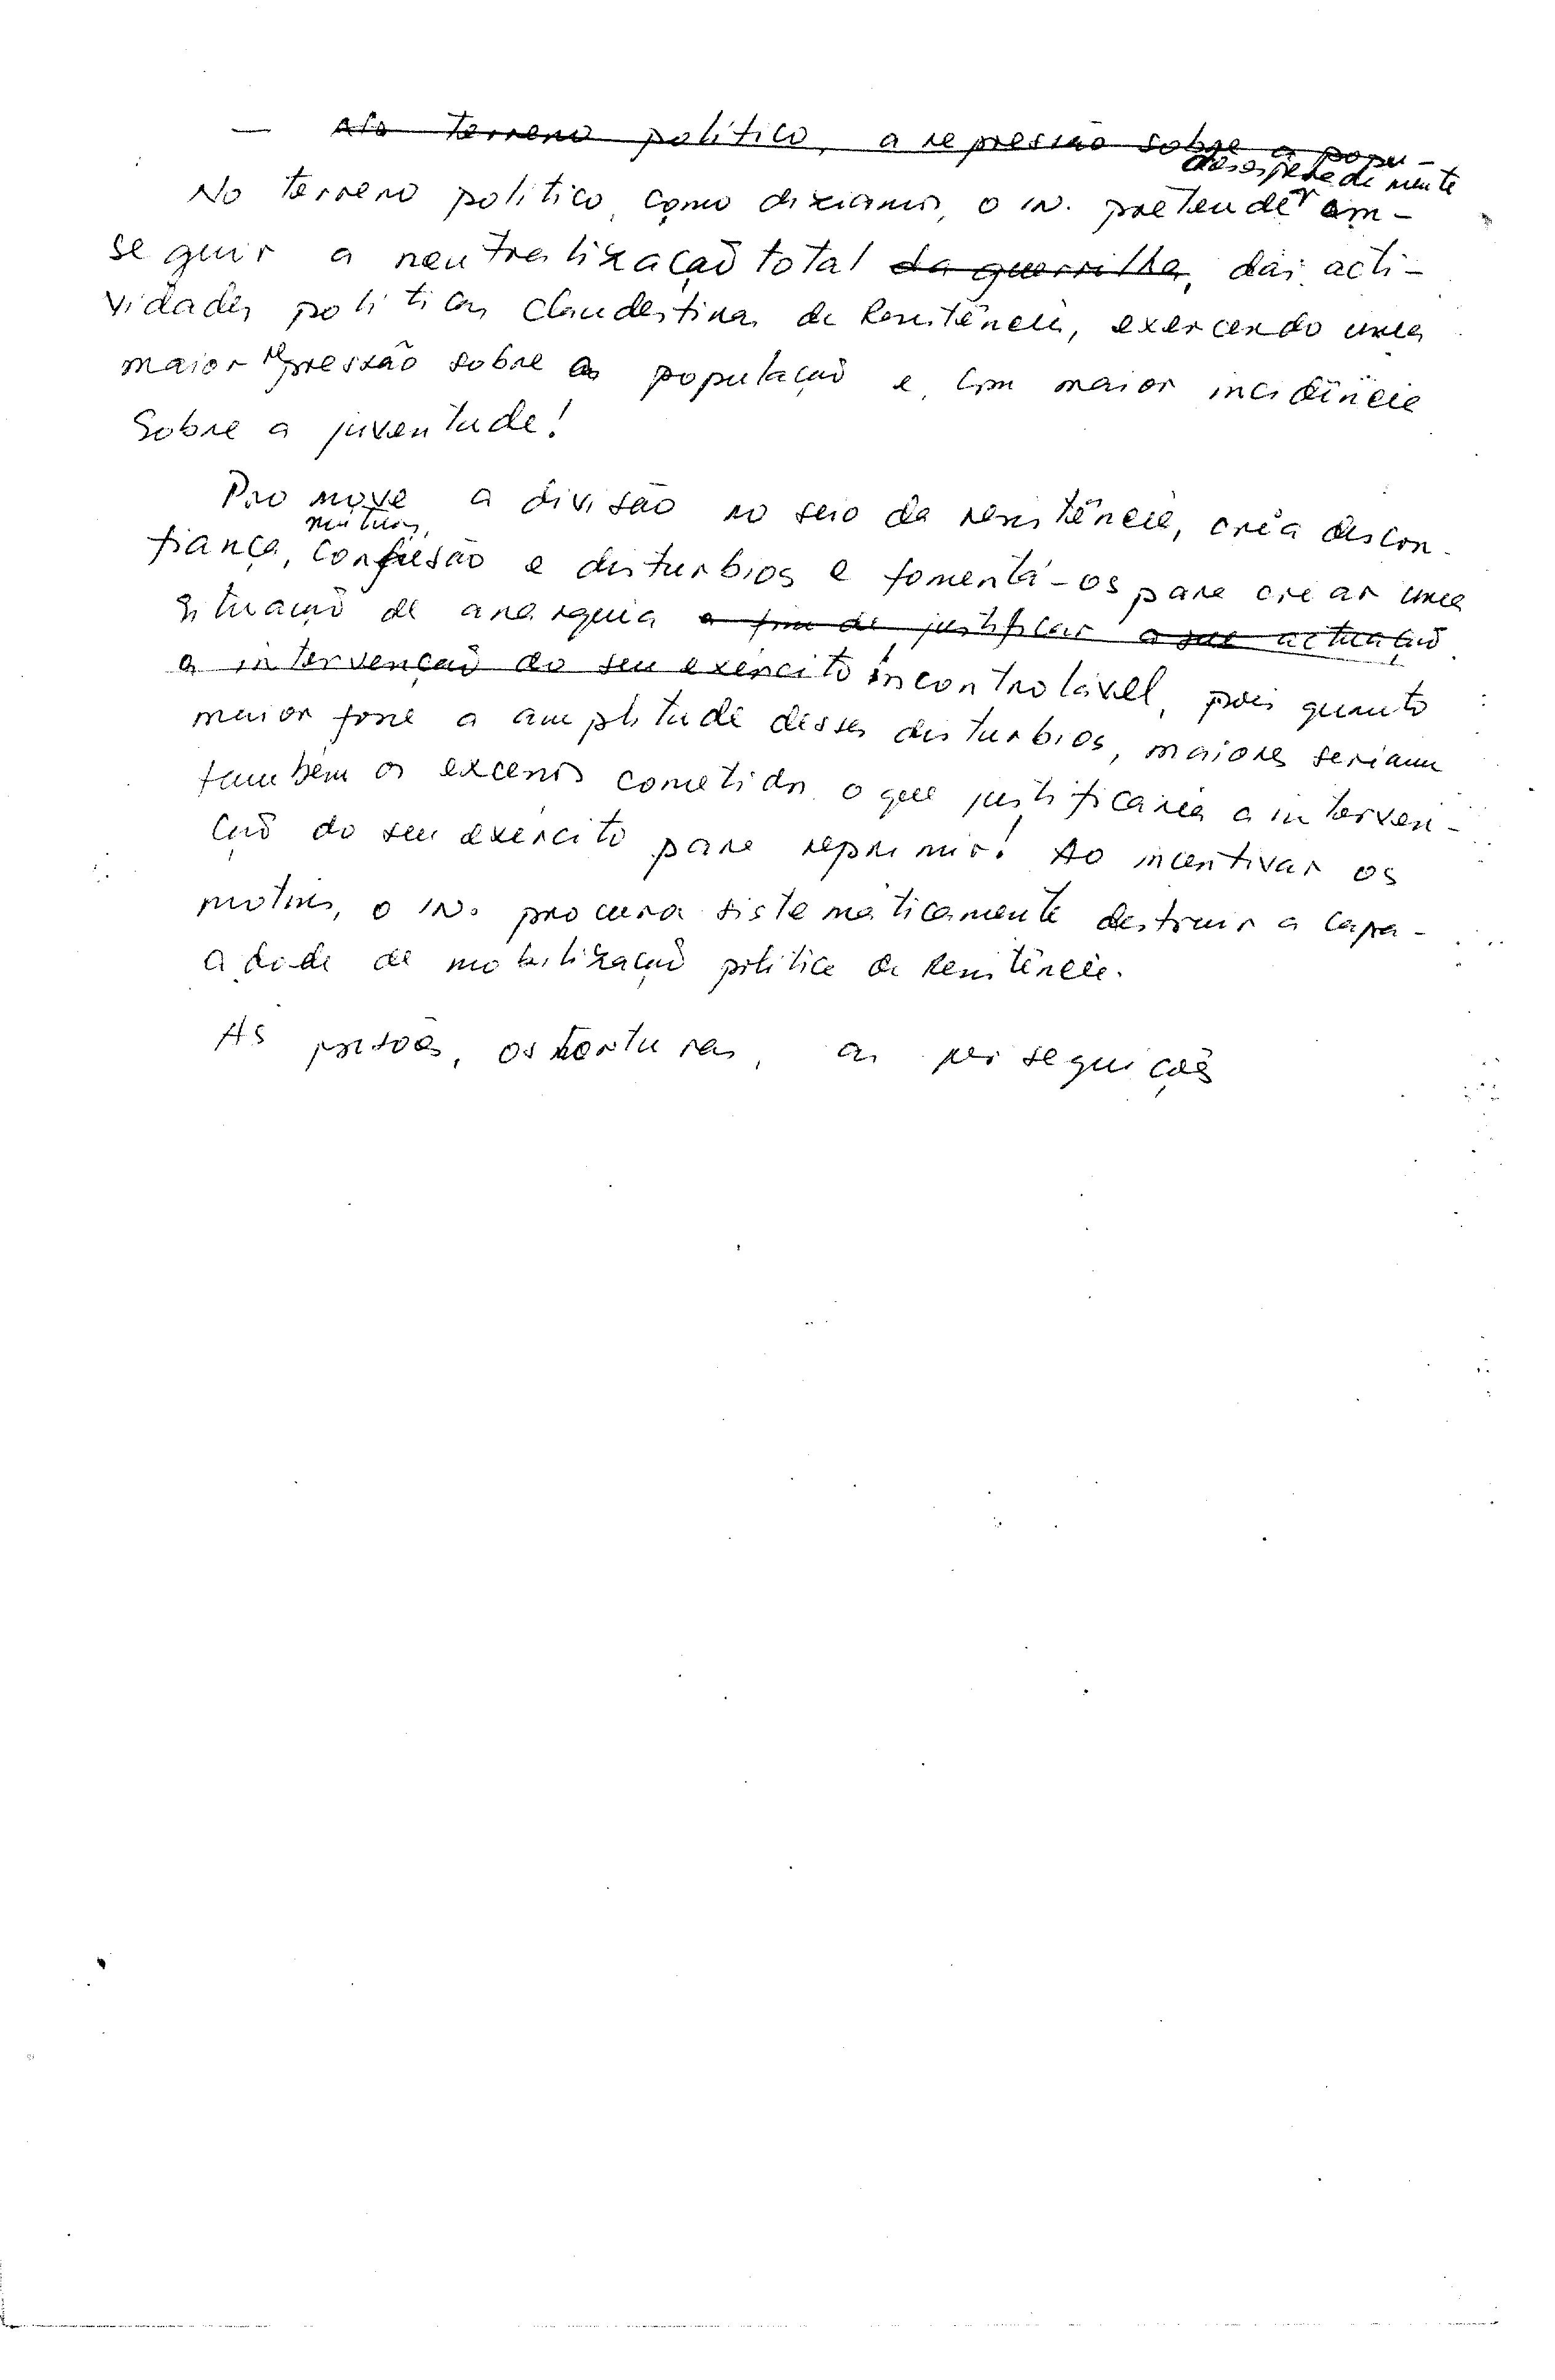 — No terreno político, a repressão sobre a popu-
desesperadamente
No terreno político, como dizíamos, o IN. pretende con-
seguir a neutralização total da guerrilha, das acti-
vidades políticas clandestinas da Resistência, exercendo uma
maior repressão sobre a população e, com maior incidência
sobre a juventude!
Promove a divisão no seio da resistência, cria descon-
mútuas,
fiança, confusão e disturbios e fomentá-os para crear uma
situação de anarquia a fim de justificar a sua actuação
a intervenção do seu exército incontrolável, pois quanto
maior fosse a amplitude desses disturbios, maiores seriam
também os excessos cometidos o que justificaria a interven-
ção do seu exército para reprimir! Ao incentivar os
motins, o IN. procura sistemáticamente destruir a capa-
cidade de mobilização política da Resistência.
As prisões, as torturas, as perseguições